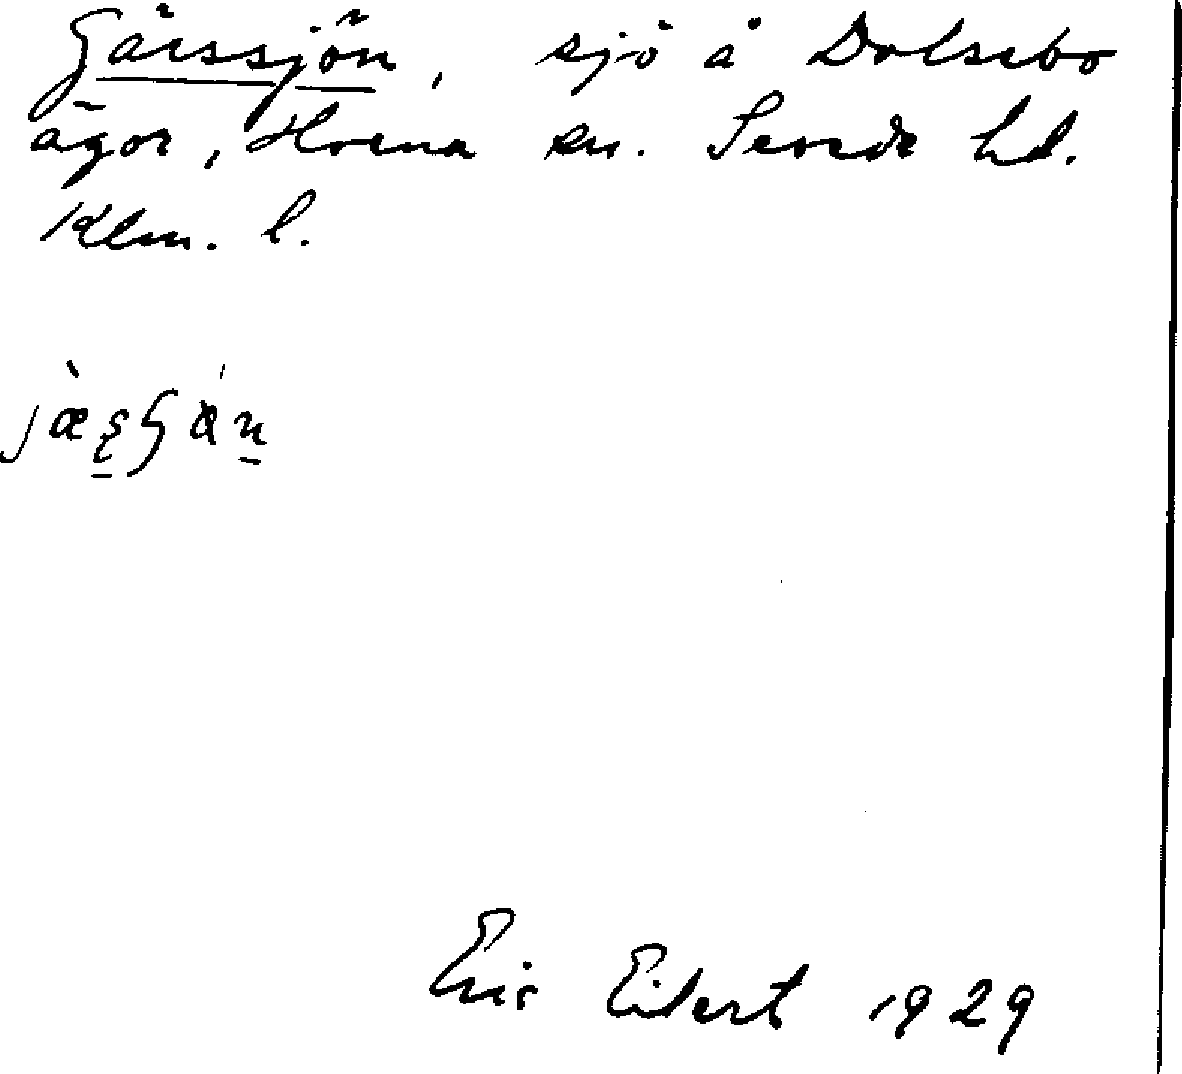 Gärssjön, sjö å Dalsebo
ägor, Hvena sn. Sevede hd.
Klm. l.
Eric Eilert 1929